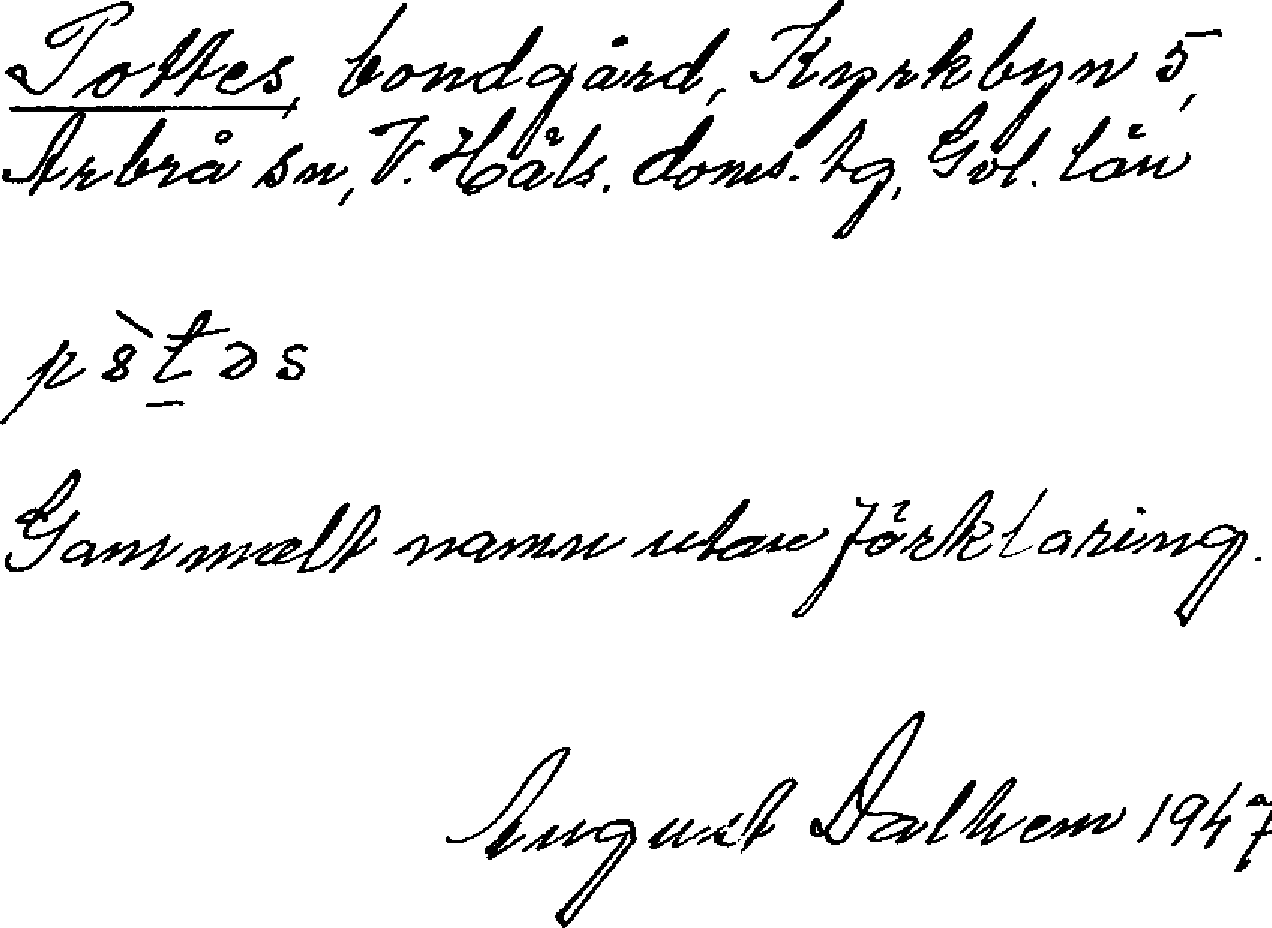 Pottes, bondgård, Kyrkbyn 5,
Arbrå sn, V. Häls. doms. tg, Gvl. län
pòt̠əs
Gammalt namn utan förklaring.
August Dalhem 1947